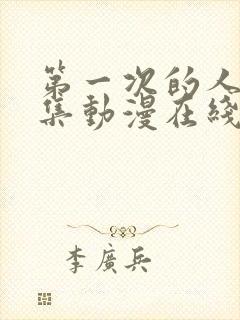 第一次的人
集動漫在綫
李廣兵